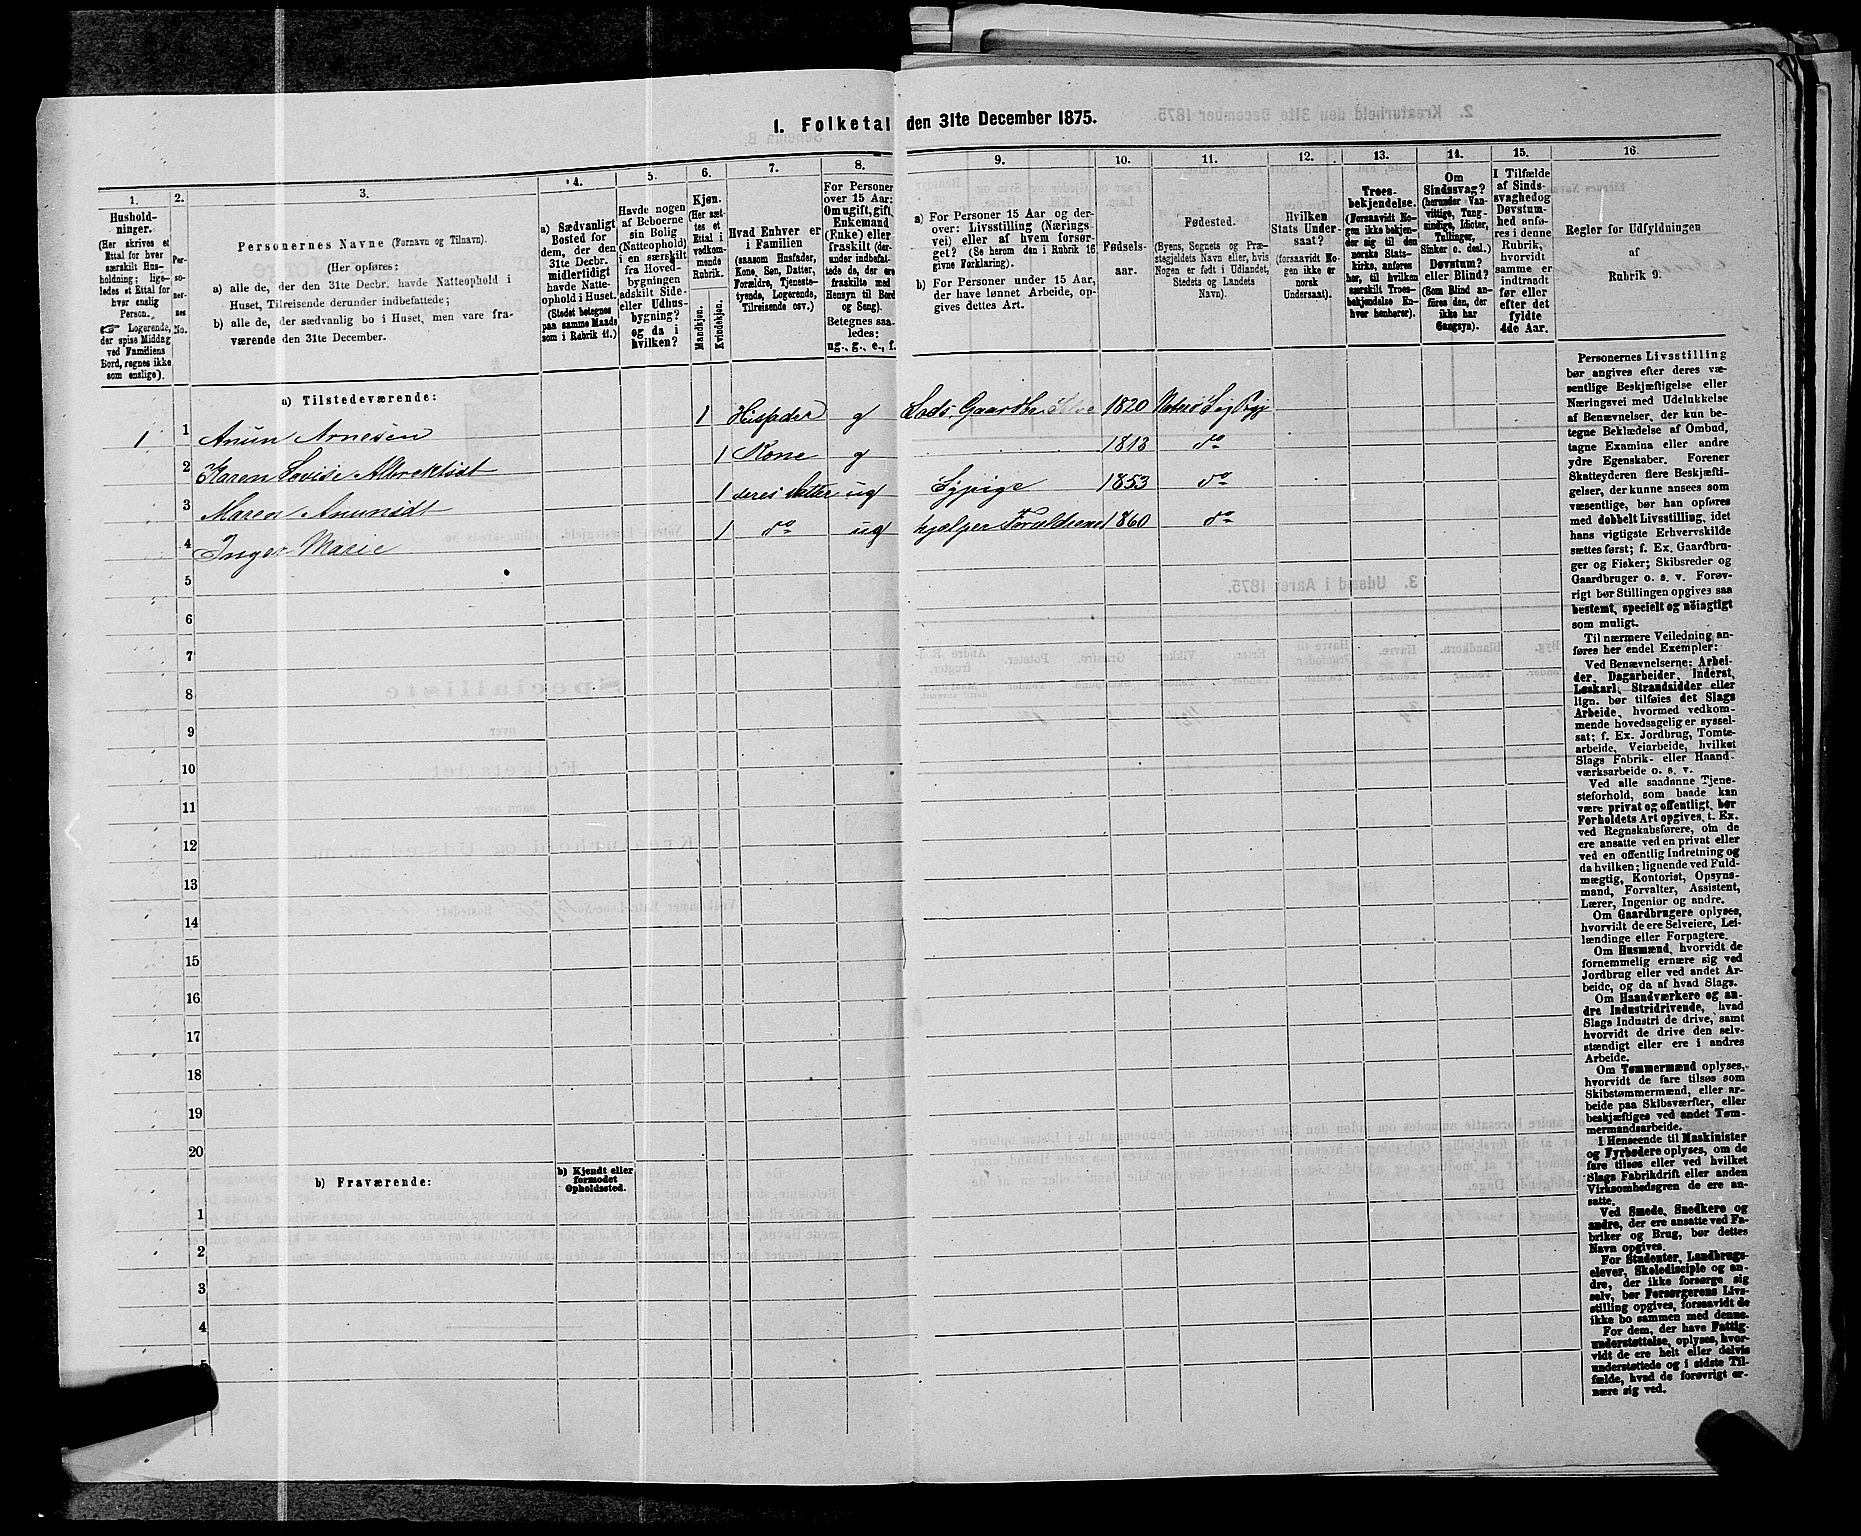 1. Folketal den 31te December 1875.
1.
Hushold-
ninger.
(Her skrives et
Ettal for hver
særskilt Hus-
holdning; lige-
ledes et Ettal for
hver enslig
Person.
☞ Logerende,
der spise Middag
ved Familiens
Bord, regnes ikke
som enslige).
2.
Per-
so-
ner-
nes
No.
3.
Personernes Navne (Fornavn og Tilnavn).
(Her opføres:
a) alle de, der den 31te Decbr. havde Natteophold i
Huset, Tilreisende derunder indbefattede;
b) alle de, der sædvanlig bo i Huset, men vare fra-
værende den 31te December.
4.
a) Sædvanligt
Bosted for
dem, der den
31te Decbr.
midlertidigt
havde Natte-
ophold i Huset.
(Stedet betegnes
paa samme Maade
som i Rubrik 11.)
5.
Havde nogen
af Beboerne
sin Bolig
(Natteophold)
i en særskilt
fra Hoved-
bygningen
adskilt Side-
eller Udhus-
bygning?
og da i
hvilken?
6.
Kjøn.
(Her sæt-
tes et
Ettal i
vedkom-
mende
Rubrik.
Mandkjøn.
Kvindekjøn.
7.
Hvad Enhver er
i Familien
(saasom Husfader,
Kone, Søn, Datter,
Forældre, Tjeneste-
tyende, Logerende,
Tilreisende osv.)
8.
For Personer
over 15 Aar:
Om ugift, gift,
Enkemand
(Enke) eller
fraskilt (der-
under indbefat-
tede de, der ere
fraskilte med
Hensyn til Bord
og Seng).
Betegnes saa-
ledes:
ug., g., e., f.
9.
a) For Personer 15 Aar og der-
over: Livsstilling (Nærings-
vei) eller af hvem forsør-
get? (Se herom den i Rubrik 16
givne Forklaring).
b) For Personer under 15 Aar,
der have lønnet Arbeide, op-
gives dettes Art.
10.
Fødsels-
aar.
11.
Fødested.
(Byens, Sognets og Præ-
stegjeldets Navn eller, hvis
Nogen er født i Udlandet,
Stedets og Landets
Navn).
12.
Hvilken
Stats Under-
saat?
(forsaavidt No-
gen ikke er
norsk
Undersaat).
13.
Troes-
bekjendelse.
(Forsaavidt No-
gen ikke bekjen-
der sig til den
norske Stats-
kirke, anføres
her, til hvilken
særskilt Troes-
bekjendelse En-
hver henhører).
14.
Om
Sindssvag?
(herunder Van-
vittige, Tung-
sindige, Idioter,
Tullinger,
Sinker o. desl.)
Døvstum?
eller Blind?
(Som Blind an-
føres den, der
ikke har
Gangsyn).
15.
I Tilfælde
af Sinds-
svaghed og
Døvstum-
hed anfø-
res i denne
Rubrik,
hvorvidt
samme er
indtraadt
før eller
efter det
fyldte
4de Aar.
16.
Regler for Udfyldningen
af
Rubrik 9.
a) Tilstedeværende:
1 1 Anun Arnesen 1 Husfader g Lods, Gaardbr. Selveier 1820 Nøterø Sg Pgj
2 Karen Lovise Albrektsdt 1 Kone g 1813 do
3 Maren Anunsdt 1 deres Datter ug Sypige 1853 do
4 Inger Marie 1 do ug hjælper Forældrene 1860 do
5
6
7
8
9
10
11
12
13
14
15
16
17
18
19
20
b) Fraværende:
b) Kjendt eller
formodet
Opholdssted.
1
2
3
4
5
Personernes Livsstilling
bør angives efter deres væ-
sentlige Beskjæftigelse eller
Næringsvei med Udelukkelse
af Benævnelser, der kun be-
tegne Beklædelse af Ombud,
tagne Examina eller andre
ydre Egenskaber. Forener
Skatteyderen flere Beskjæfti-
gelser, der kunne ansees som
væsentlige, bør han opføres
med dobbelt Livsstilling, idet
hans vigtigste Erhvervskilde
sættes først; f. Ex. Gaardbru-
ger og Fisker; Skibsreder og
Gaardbruger o. s. v. Forøv-
rigt bør Stillingen opgives saa
bestemt, specielt og nöiagtigt
som muligt.
Til nærmere Veiledning an-
føres her endel Exempler:
Ved Benævnelserne: Arbei-
der, Dagarbeider, Inderst,
Løskarl, Strandsidder eller
lign. bør tilføies det Slags
Arbeide, hvormed vedkom-
mende hovedsagelig er syssel-
sat; f. Ex. Jordbrug, Tomte-
arbeide, Veiarbeide, hvilket
Slags Fabrik- eller Haand-
værksarbeide o. s. v.
Ved alle saadanne Tjene-
steforhold, som baade kan
være privat og offentligt, bør
Forholdets Art opgives, t. Ex.
ved Regnskabsførere, om de
ere ansatte ved en privat eller
ved en offentlig Indretning og
da hvilken; lignende ved Fuld-
mægtig, Kontorist, Opsyns-
mand, Forvalter, Assistent,
Lærer, Ingeniør og andre.
Om Gaardbrugere oplyses,
hvorvidt de ere Selveiere, Lei-
lændinge eller Forpagtere.
Om Husmænd, hvorvidt de
fornemmelig ernære sig ved
Jordbrug eller ved andet Ar-
beide, og da af hvad Slags.
Om Haandværkere og an-
dre Industridrivende, hvad
Slags Industri de drive, samt
hvorvidt de drive den selv-
stændigt eller ere i andres
Arbeide.
Om Tømmermænd oplyses,
hvorvidt de fare tilsøs som
Skibstømmermænd, eller ar-
beide paa Skibsværfter, eller
beskjæftiges ved andet Tøm-
mermandsarbeide.
I Henseende til Maskinister
og Fyrbødere oplyses, om de
fare tilsøs eller ved hvilket
Slags Fabrikdrift eller anden
Virksomhedsgren de ere an-
satte.
Ved Smede, Snedkere og
andre, der ere ansatte ved Fa-
briker og Brug, bør dettes
Navn opgives.
For Studenter, Landbrugs-
elever, Skoledisciple og an-
dre, der ikke forsørge sig
selv, bør Forsørgerens Livs-
stilling opgives, forsaavidt de
ikke bo sammen med denne.
For dem, der have Fattig-
understøttelse, oplyses, hvor-
vidt de ere helt eller delvis
understøttede og i sidste Til-
fælde, hvad de forøvrigt er-
nære sig ved.